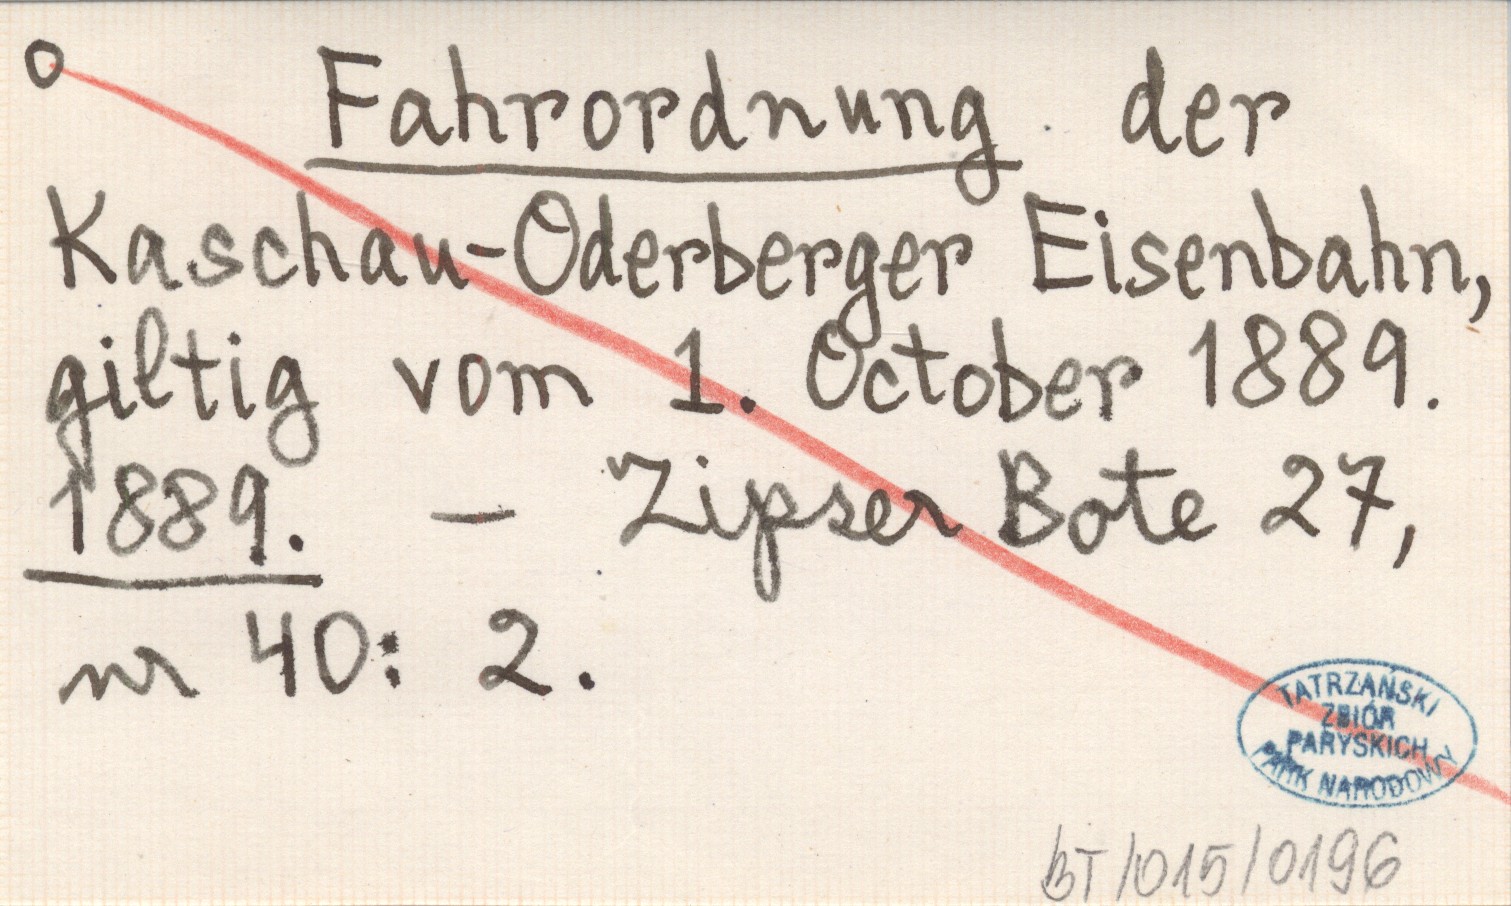 o Fahrordnung der
Kaschau-Oderberger Eisenbahn,
giltig vom 1. October 1889.
1889. — Zipser Bote 27,
nr 40: 2.
TATRZAŃSKI
ZBIÓR
PARYSKICH
PARK NARODOWY
BT/015/0196